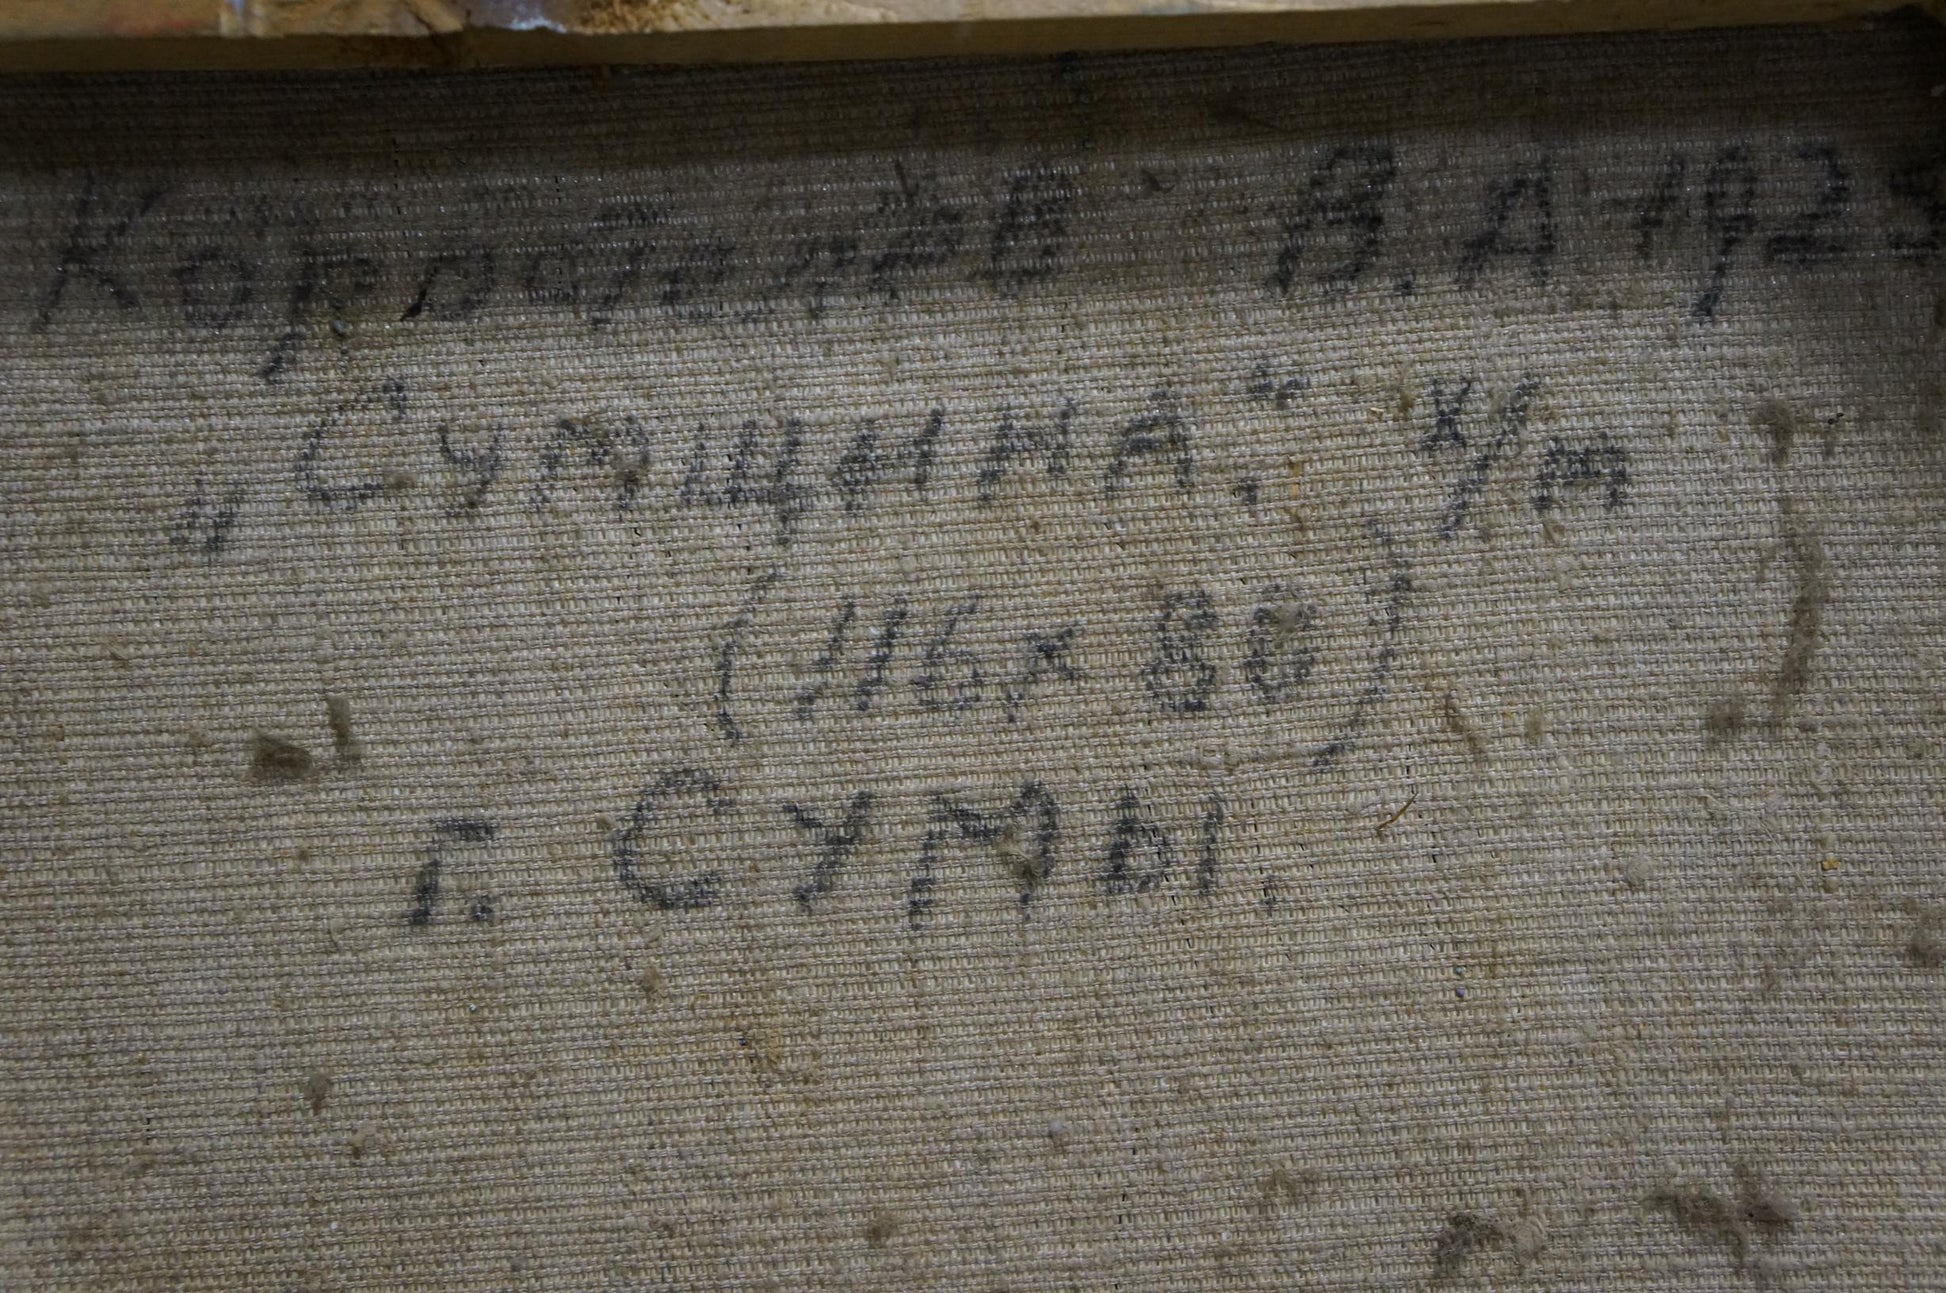 Коростелёв В.А 192
„Сумщина". х/м
(116х80)
г. Сумы.